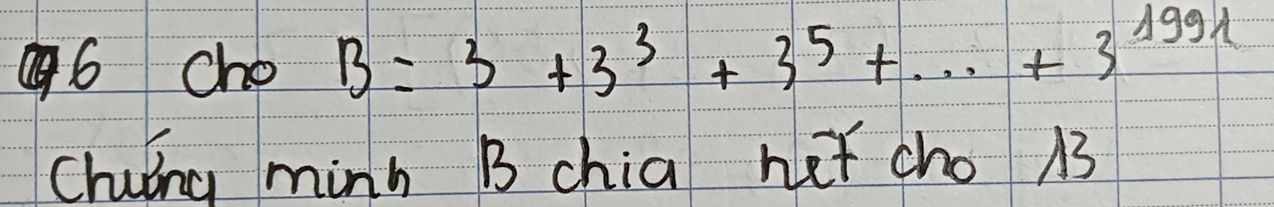 6 Cho B = 3 + 3³ + 3⁵ + ... + 3¹⁹⁹¹
Chứng minh B chia hết cho 13